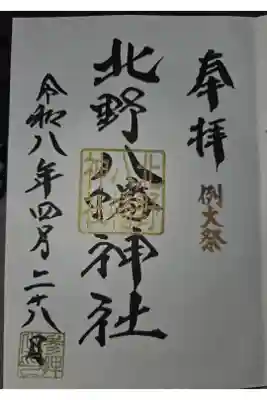 奉拝
例大祭
北野八幡神社
令和八年四月二十八日